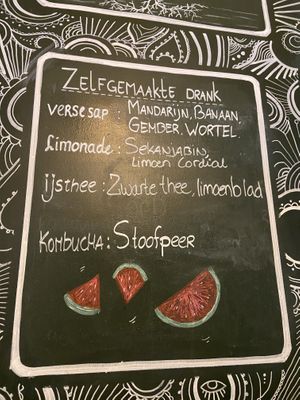 ZELFGEMAAKTE DRANK
VERSE SAP : MANDARIJN, BANAAN,
GEMBER, WORTEL.
Limonade: SEKANJABIN,
limoen Cordial
ijsthee : Zwarte thee, limoenblad
KOMBUCHA: Stoofpeer